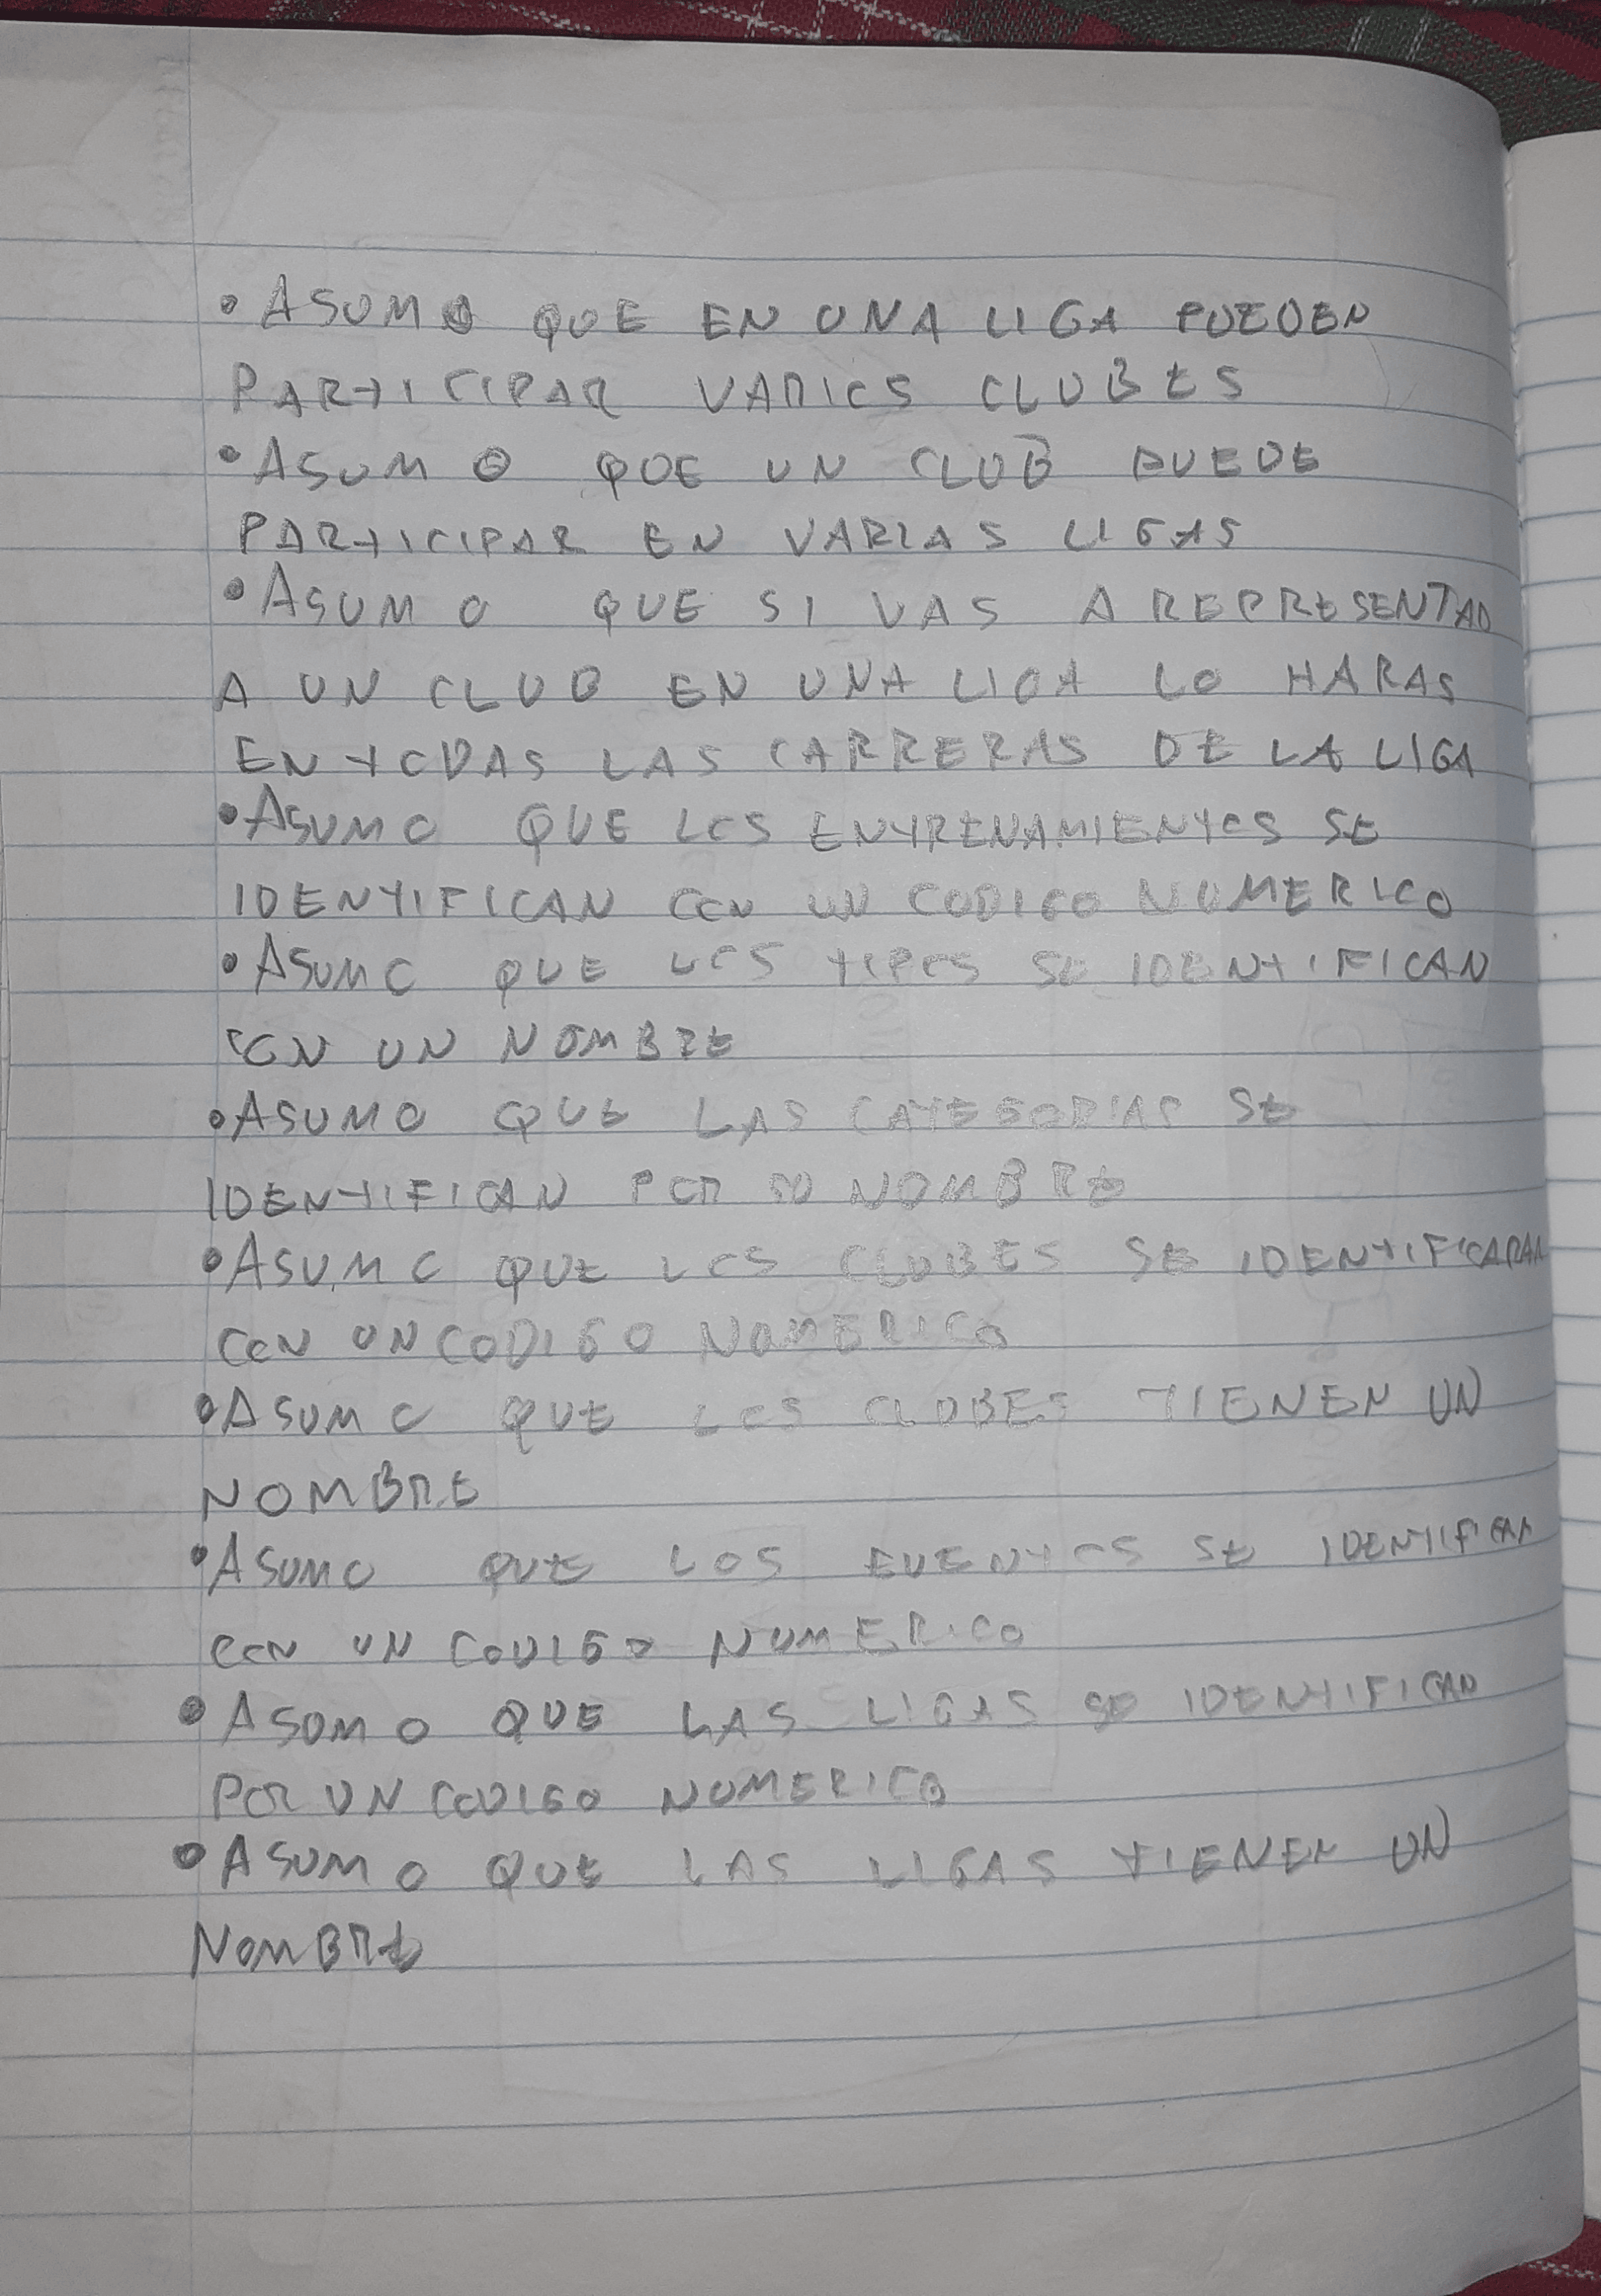 • ASUMO QUE EN UNA LIGA PUEDEN
PARTICIPAR VARIOS CLUBES
• ASUMO QUE UN CLUB PUEDE
PARTICIPAR EN VARIAS LIGAS
• ASUMO QUE SI VAS A REPRESENTAR
A UN CLUB EN UNA LIGA LO HARAS
EN TODAS LAS CARRERAS DE LA LIGA
• ASUMO QUE LOS ENTRENAMIENTOS SE
IDENTIFICAN CON UN CODIGO NUMERICO
• ASUMO QUE LOS TIPOS SE IDENTIFICAN
CON UN NOMBRE
• ASUMO QUE LAS CATEGORIAS SE
IDENTIFICAN POR SU NOMBRE
• ASUMO QUE LOS CLUBES SE IDENTIFICARAN
CON UN CODIGO NUMERICO
• ASUMO QUE LOS CLUBES TIENEN UN
NOMBRE
• ASUMO QUE LOS EVENTOS SE IDENTIFICAN
CON UN CODIGO NUMERICO
• ASUMO QUE LAS LIGAS SE IDENTIFICAN
POR UN CODIGO NUMERICO
• ASUMO QUE LAS LIGAS TIENEN UN
NOMBRE